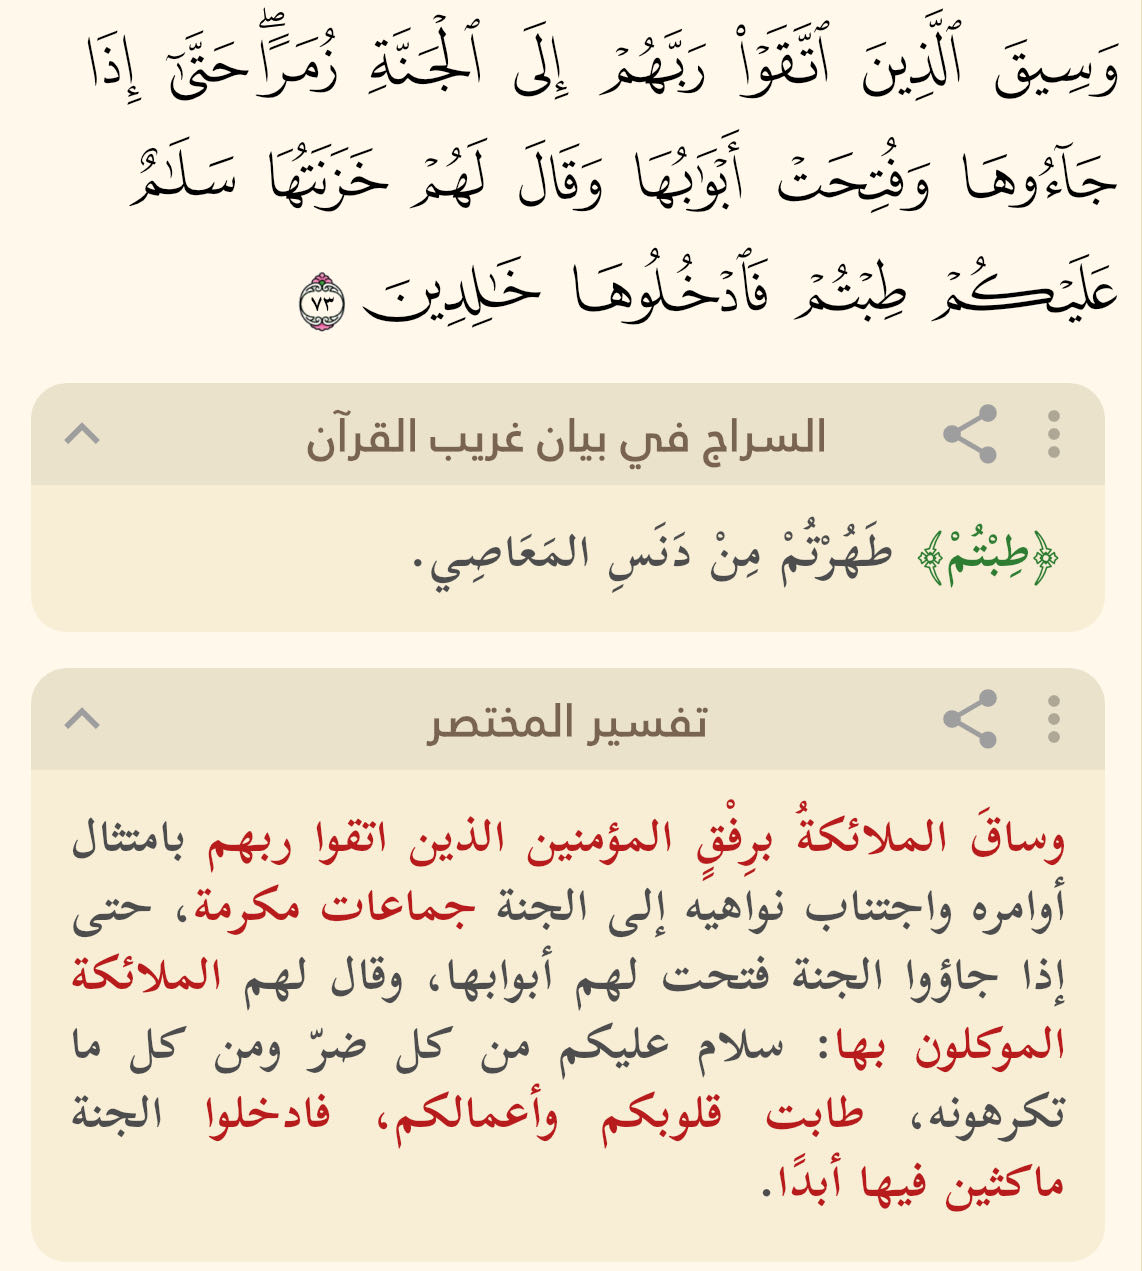 وَسِيقَ ٱلَّذِينَ ٱتَّقَوۡاْ رَبَّهُمۡ إِلَى ٱلۡجَنَّةِ زُمَرًاۖ حَتَّىٰٓ إِذَا
جَآءُوهَا وَفُتِحَتۡ أَبۡوَٰبُهَا وَقَالَ لَهُمۡ خَزَنَتُهَا سَلَٰمٌ
عَلَيۡكُمۡ طِبۡتُمۡ فَٱدۡخُلُوهَا خَٰلِدِينَ ٧٣
السراج في بيان غريب القرآن
﴿طِبْتُمْ﴾ طَهُرْتُمْ مِنْ دَنَسِ المَعَاصِي.
تفسير المختصر
وساقَ الملائكةُ برِفْقٍ المؤمنين الذين اتقوا ربهم بامتثال
أوامره واجتناب نواهيه إلى الجنة جماعات مكرمة، حتى
إذا جاؤوا الجنة فتحت لهم أبوابها، وقال لهم الملائكة
الموكلون بها: سلام عليكم من كل ضرّ ومن كل ما
تكرهونه، طابت قلوبكم وأعمالكم، فادخلوا الجنة
ماكثين فيها أبدًا.